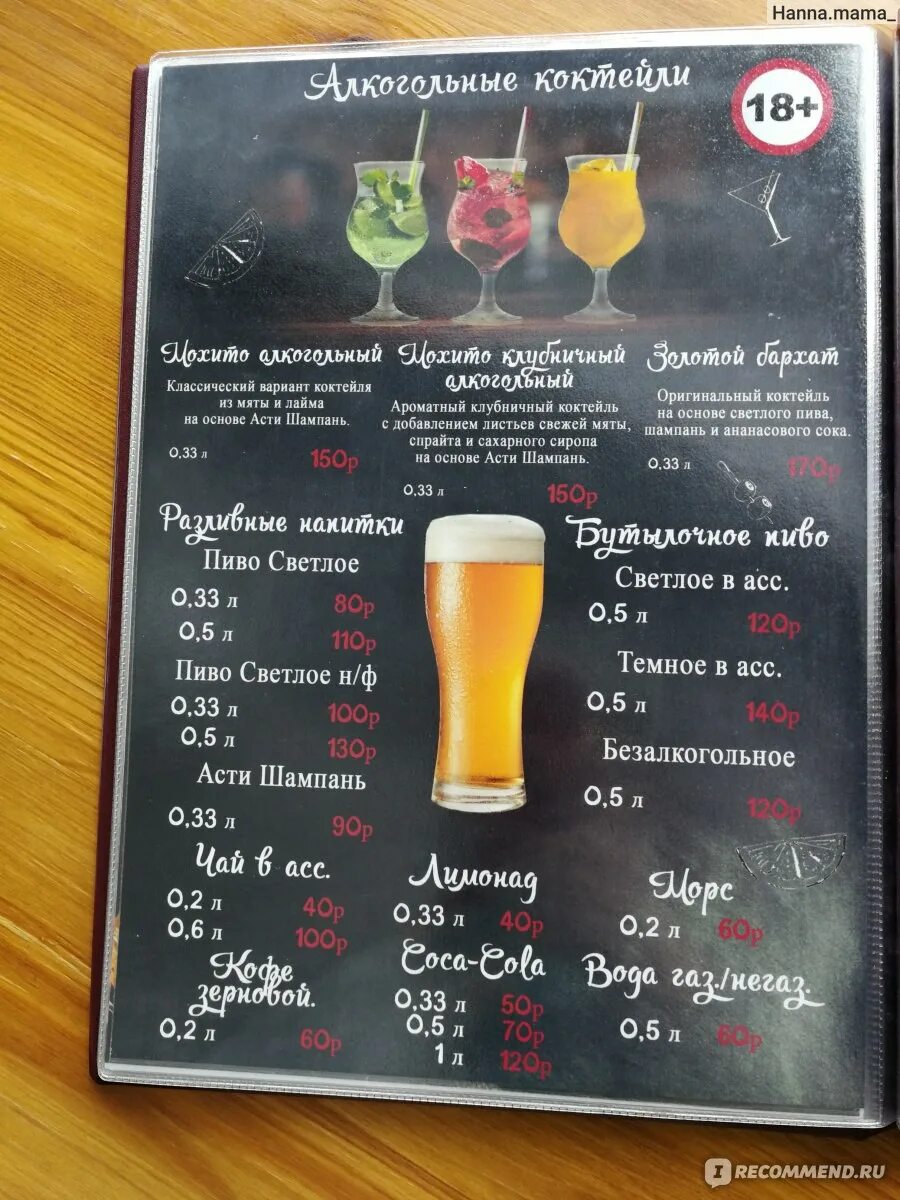 Hanna.mama_
Алкогольные коктейли
18+
Мохито алкогольный
Классический вариант коктейля
из мяты и лайма
на основе Асти Шампань.
0,33 л 150р
Мохито клубничный
алкогольный
Ароматный клубничный коктейль
с добавлением листьев свежей мяты,
спрайта и сахарного сиропа
на основе Асти Шампань.
0,33 л 150р
Золотой бархат
Оригинальный коктейль
на основе светлого пива,
шампань и ананасового сока.
0,33 л 170р
Разливные напитки
Пиво Светлое
0,33 л 80р
0,5 л 110р
Пиво Светлое н/ф
0,33 л 100р
0,5 л 130р
Асти Шампань
0,33 л 90р
Бутылочное пиво
Светлое в асс.
0,5 л 120р
Темное в асс.
0,5 л 140р
Безалкогольное
0,5 л 120р
Чай в асс.
0,2 л 40р
0,6 л 100р
Кофе
зерновой.
0,2 л 60р
Лимонад
0,33 л 40р
Coca-Cola
0,33 л 50р
0,5 л 70р
1 л 120р
Морс
0,2 л 60р
Вода газ./негаз.
0,5 л 60р
I RECOMMEND.RU